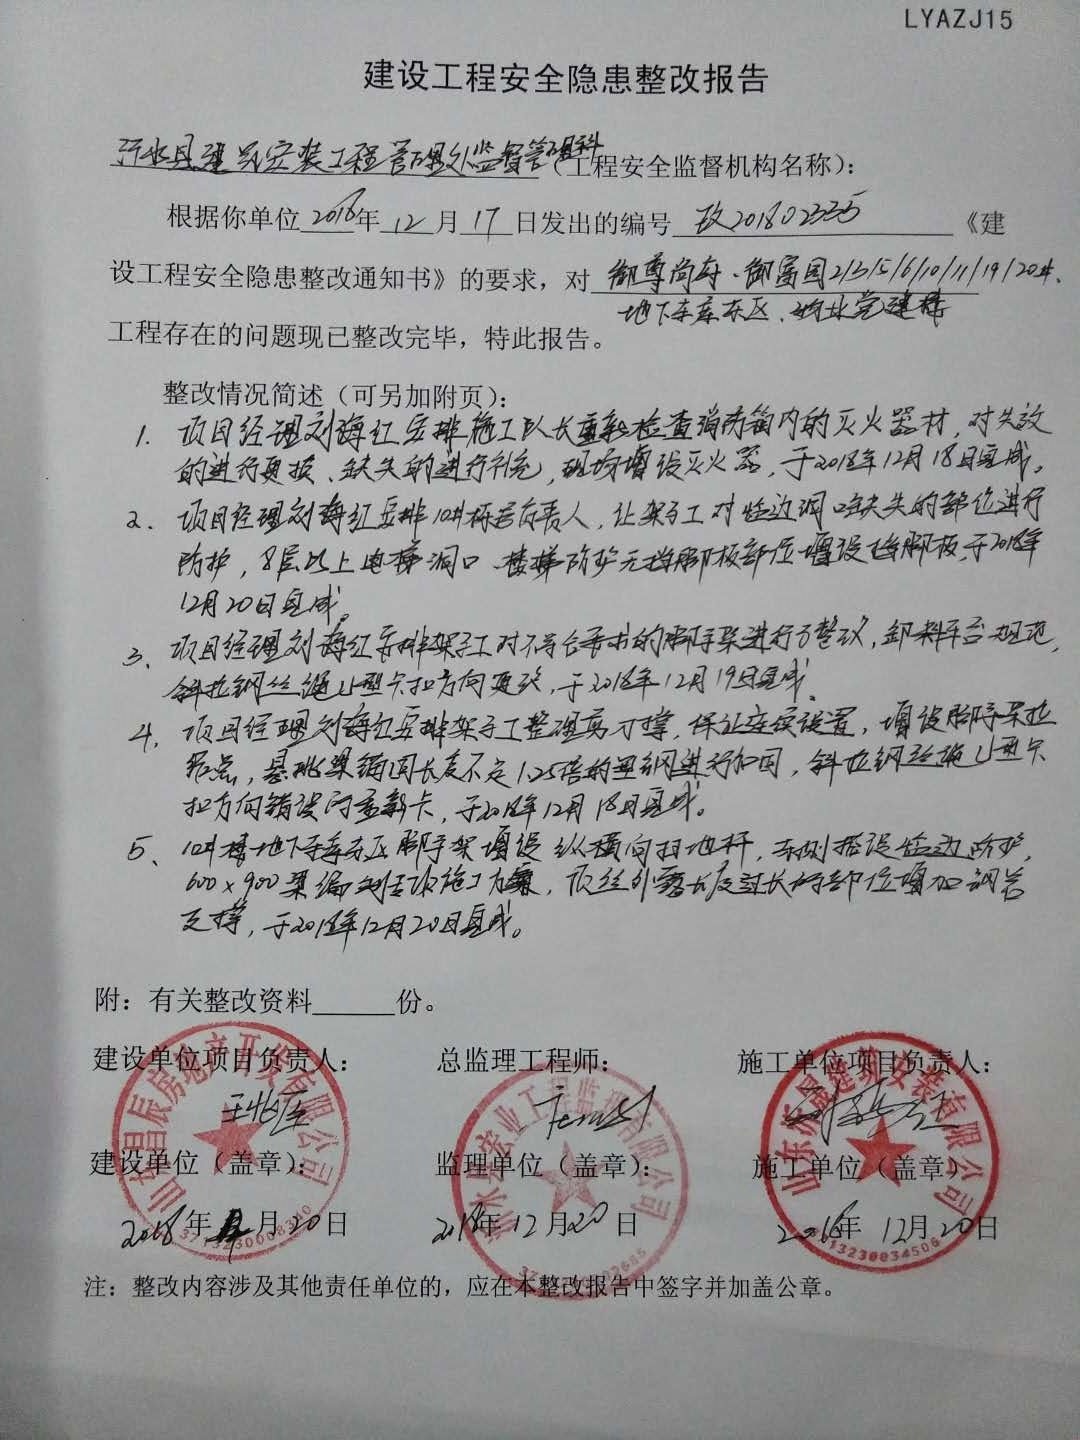 LYAZJ15
建设工程安全隐患整改报告
沂水县建筑安装工程管理处监督管理科(工程安全监督机构名称):
根据你单位2018年12月17日发出的编号 改201802335 《建
设工程安全隐患整改通知书》的要求,对 御尊尚府·御富园2/3/5/6/10/11/19/20#、
地下车库东区、物业党建楼
工程存在的问题现已整改完毕,特此报告。
整改情况简述(可另加附页):
1. 项目经理刘海红安排施工队长重新检查消防箱内的灭火器材,对失效
的进行更换、缺失的进行补充,现场增设灭火器,于2018年12月18日完成。
2、项目经理刘海红安排10#栋号负责人,让架子工对临边洞口缺失的部位进行
防护,8层以上电梯洞口、楼梯防护无挡脚板部位增设挡脚板,于2018年
12月20日完成。
3、项目经理刘海红安排架子工对不符合要求的脚手架进行了整改,卸料平台规范,
斜拉钢丝绳U型卡扣方向更改,于2018年12月19日完成。
4、项目经理刘海红安排架子工整理剪刀撑,保证连续设置,增设脚手架拉
结点,悬挑梁锚固长度不足1.25倍的型钢进行加固,斜拉钢丝绳U型卡
扣方向错误的重新卡,于2018年12月18日完成。
5、10#楼地下车库东区脚手架增设纵横向扫地杆,东侧搭设临边防护,
600×900梁编制专项施工方案,顶丝外露长度过长的部位增加钢管
支撑,于2018年12月20日完成。
附:有关整改资料______份。
建设单位项目负责人: 总监理工程师: 施工单位项目负责人:
建设单位(盖章): 监理单位(盖章): 施工单位(盖章)
2018年12月20日 2018年12月20日 2018年12月20日
昌辰房地产开发有限公司
3713230008300
沂水县宏业工程监理有限公司
建筑安装有限公司
3713230034506
注:整改内容涉及其他责任单位的,应在本整改报告中签字并加盖公章。